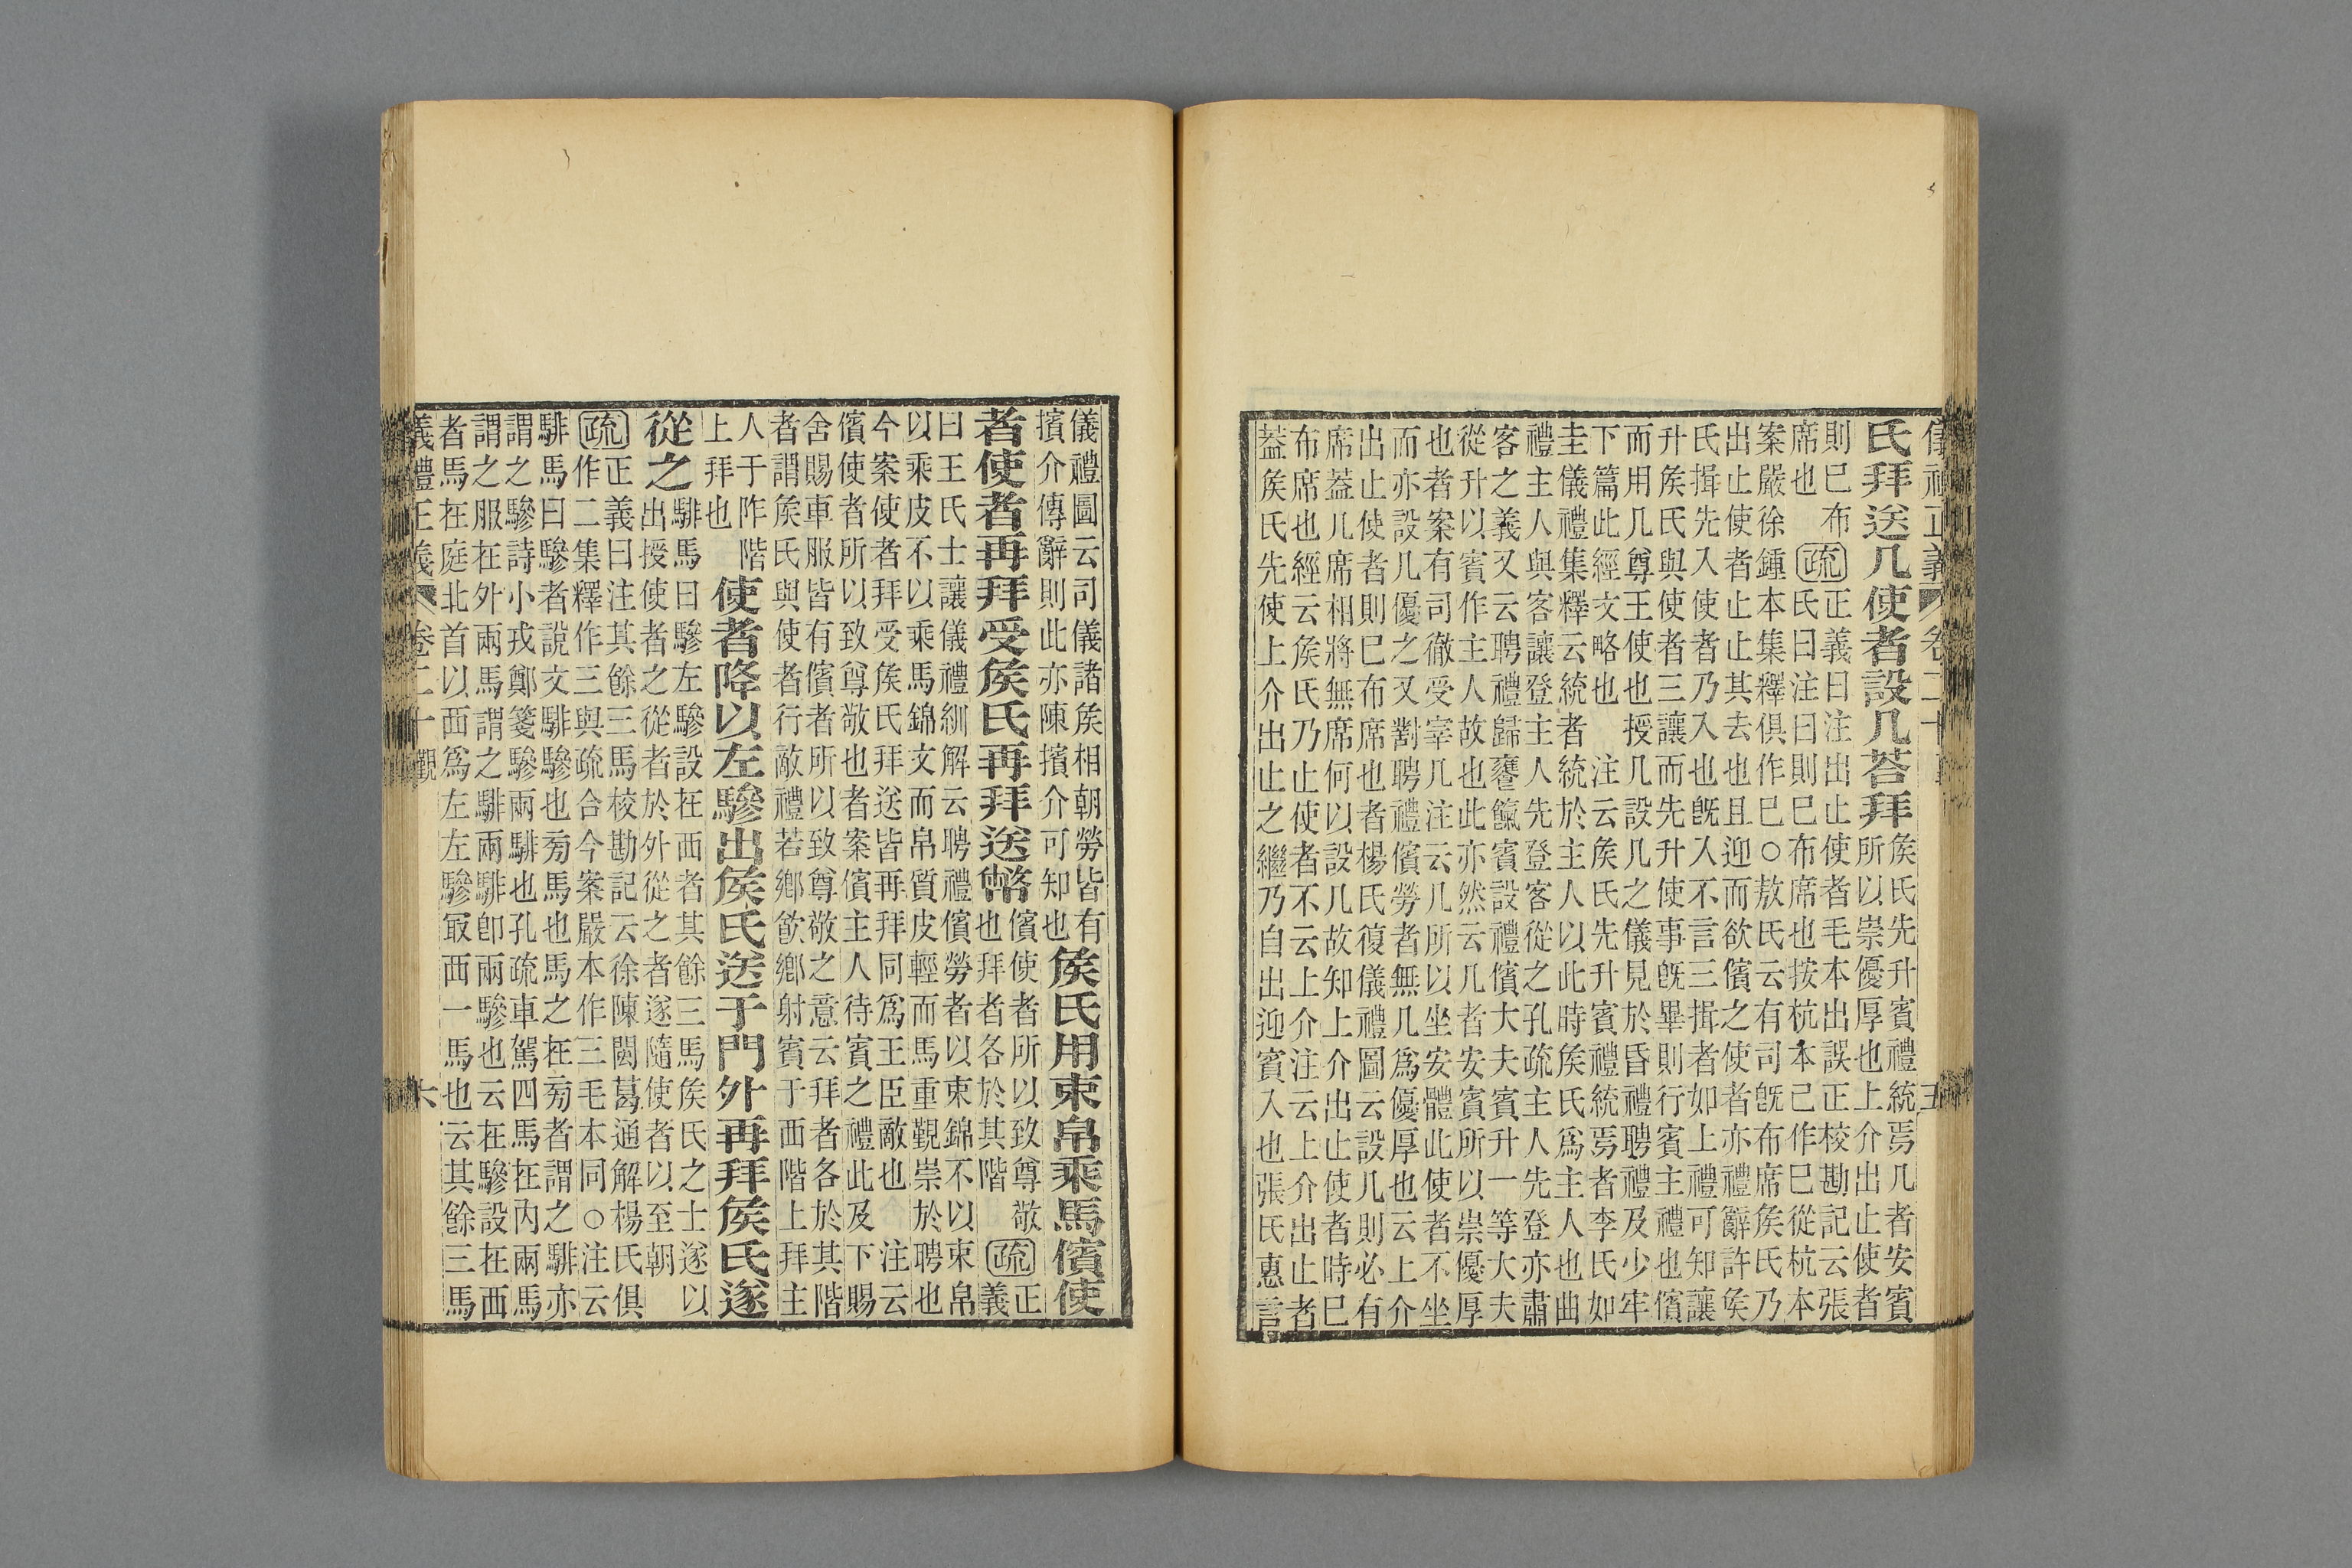 儀禮正義 卷二十 五
氏拜送几使者設几荅拜
侯氏先升賓禮統焉几者安賓
所以崇優厚也上介出止使者
則已布 疏 正義曰注出止使者毛本出誤正校勘記云張
席也 氏曰注曰則巳布席也按杭本己作巳從杭本
案嚴徐鍾本集釋俱作巳○敖氏云有司旣布席侯氏乃
出止使者止止其去也且迎而欲儐之使者亦禮辭許侯
氏揖先入使者乃入也旣入不言三揖者如上禮可知讓
升侯氏與使者三讓而先升使事旣畢則行賓主禮也儐
而用几尊王使也 授几設几之儀見於昏禮聘禮及少牢
下篇此經文略也 注云侯氏先升賓禮統焉者李氏如
圭儀禮集釋云統者統於主人以此時侯氏爲主人也曲
禮主人與客讓登主人先登客從之孔疏主人先登亦肅
客之義又云聘禮歸饔餼賓設禮儐大夫賓升一等大夫
從升以賓作主人故也此亦然云几者安賓所以崇優厚
也者案有司徹受宰几注云几所以坐安體此使者不坐
而亦設几優之又對聘禮儐勞者無几爲優厚也云上介
出止使者則巳布席也者楊氏復儀禮圖云設几則必有
席葢几席相將無席何以設几故知上介出止使者時巳
布席也經云侯氏乃止使者不云上介注云上介出止者
葢侯氏先使上介出止之繼乃自出迎賓入也張氏惠言
儀禮圖云司儀諸侯相朝勞皆有
擯介傳辭則此亦陳擯介可知也
侯氏用束帛乘馬儐使
者使者再拜受侯氏再拜送幣
儐使者所以致尊敬 疏 正
也拜者各於其階 義
曰王氏士讓儀禮紃解云聘禮儐勞者以束錦不以束帛
以乘皮不以乘馬錦文而帛質皮輕而馬重覲崇於聘也
今案使者拜受侯氏拜送皆再拜同爲王臣敵也 注云
儐使者所以致尊敬也者案儐主人待賓之禮此及下賜
舍賜車服皆有儐者所以致尊敬之意云拜者各於其階
者謂侯氏與使者行敵禮若鄉飲鄉射賓于西階上拜主
人于阼階
上拜也
使者降以左驂出侯氏送于門外再拜侯氏遂
從之
騑馬曰驂左驂設在西者其餘三馬侯氏之士遂以
出授使者之從者於外從之者遂隨使者以至朝
疏 正義曰注其餘三馬校勘記云徐陳閩葛通解楊氏俱
作二集釋作三與疏合今案嚴本作三毛本同○注云
騑馬曰驂者說文騑驂也㫄馬也馬之在㫄者謂之騑亦
謂之驂詩小戎鄭箋驂兩騑也孔疏車駕四馬在內兩馬
謂之服在外兩馬謂之騑兩騑卽兩驂也云在驂設在西
者馬在庭北首以西爲左左驂最西一馬也云其餘三馬
儀禮正義 卷二十 覲 六